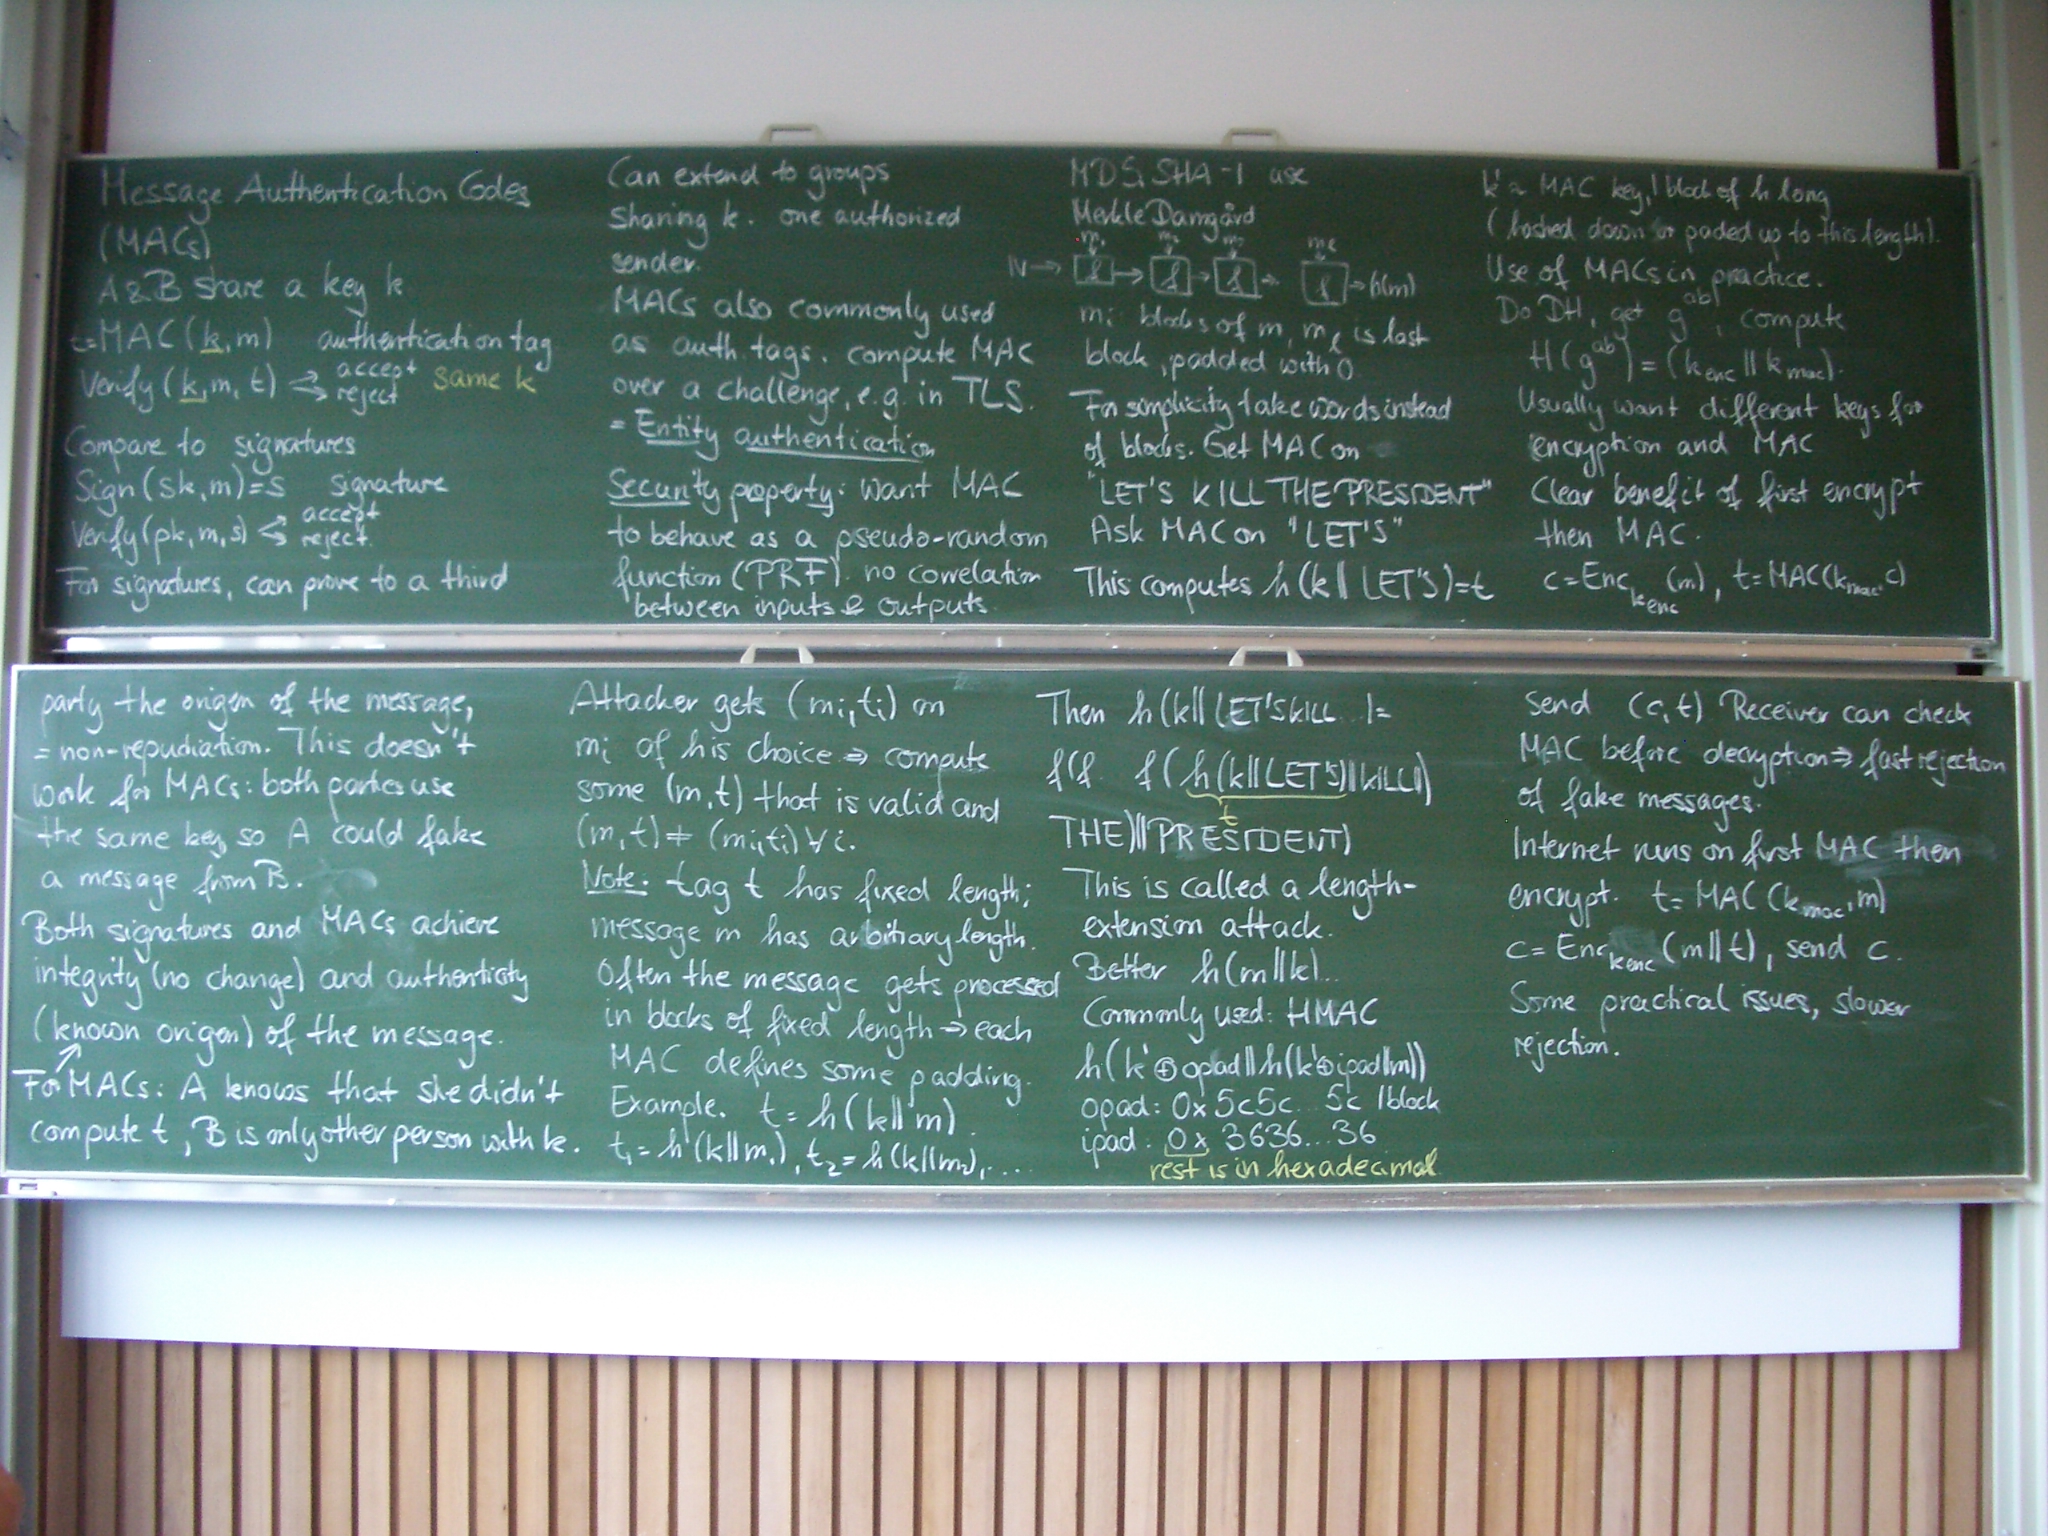 Message Authentication Codes
(MACs)
A & B share a key k
t=MAC(k,m) authentication tag
Verify(k,m,t) accept
reject
same k
Compare to signatures
Sign(sk,m)=s signature
Verify(pk,m,s) accept
reject.
For signatures, can prove to a third
party the origin of the message,
= non-repudiation. This doesn't
work for MACs: both parties use
the same key, so A could fake
a message from B.
Both signatures and MACs achieve
integrity (no change) and authenticity
(known origin) of the message.
↗
For MACs: A knows that she didn't
compute t, B is only other person with k.
Can extend to groups
sharing k. one authorized
sender.
MACs also commonly used
as auth. tags. compute MAC
over a challenge, e.g. in TLS.
= Entity authentication
Security property: want MAC
to behave as a pseudo-random
function (PRF). no correlation
between inputs & outputs.
Attacker gets (mᵢ,tᵢ) on
mᵢ of his choice ⇒ compute
some (m,t) that is valid and
(m,t) ≠ (mᵢ,tᵢ) ∀ i.
Note: tag t has fixed length;
message m has arbitrary length.
Often the message gets processed
in blocks of fixed length → each
MAC defines some padding.
Example. t = h(k||m)
t₁ = h(k||m₁), t₂ = h(k||m₂), ....
MD5, SHA-1 use
Merkle Damgård
m₁ m₂ m₃ mℓ
IV → f → f → f → f → h(m)
mᵢ blocks of m, mℓ is last
block, padded with 0.
For simplicity take words instead
of blocks. Get MAC on
"LET'S KILL THE PRESIDENT"
Ask MAC on "LET'S"
This computes h(k||LET'S)=t
Then h(k||LET'S KILL...)=
f(f f(h(k||LET'S)||KILL)
t
THE)||PRESIDENT)
This is called a length-
extension attack.
Better h(m||k)...
Commonly used: HMAC
h(k'⊕opad||h(k'⊕ipad||m))
opad: 0x5c5c...5c 1block
ipad: 0x3636...36
rest is in hexadecimal
k' ≈ MAC key, 1 block of h long
(hashed down or paded up to this length).
Use of MACs in practice.
Do DH, get g^ab, compute
H(g^ab) = (k_enc || k_mac).
Usually want different keys for
encryption and MAC
Clear benefit of first encrypt
then MAC.
c=Enc_k_enc(m), t=MAC(k_mac,c)
Send (c,t) Receiver can check
MAC before decryption ⇒ fast rejection
of fake messages.
Internet runs on first MAC then
encrypt. t=MAC(k_mac,m)
c=Enc_k_enc(m||t), send c.
Some practical issues, slower
rejection.